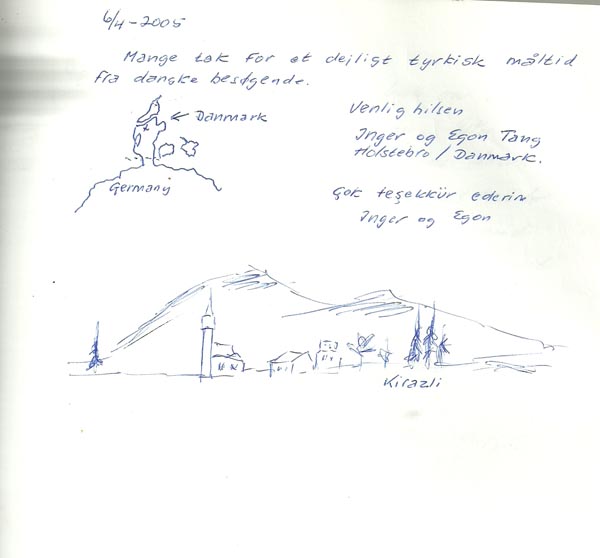 6/4-2005
Mange tak for et dejligt tyrkisk måltid
fra danske besøgende.
← Danmark
Germany
Venlig hilsen
Inger og Egon Tang
Holstebro / Danmark.
Çok teşekkür ederim
Inger og Egon
Kirazli